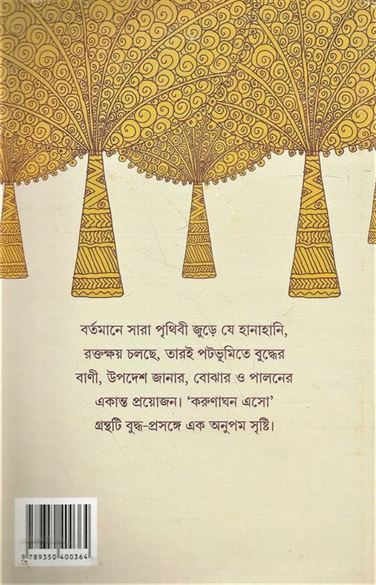 বর্তমানে সারা পৃথিবী জুড়ে যে হানাহানি,
রক্তক্ষয় চলছে, তারই পটভূমিতে বুদ্ধের
বাণী, উপদেশ জানার, বোঝার ও পালনের
একান্ত প্রয়োজন। ‘করুণাঘন এসো’
গ্রন্থটি বুদ্ধ-প্রসঙ্গে এক অনুপম সৃষ্টি।
9 789350 400364